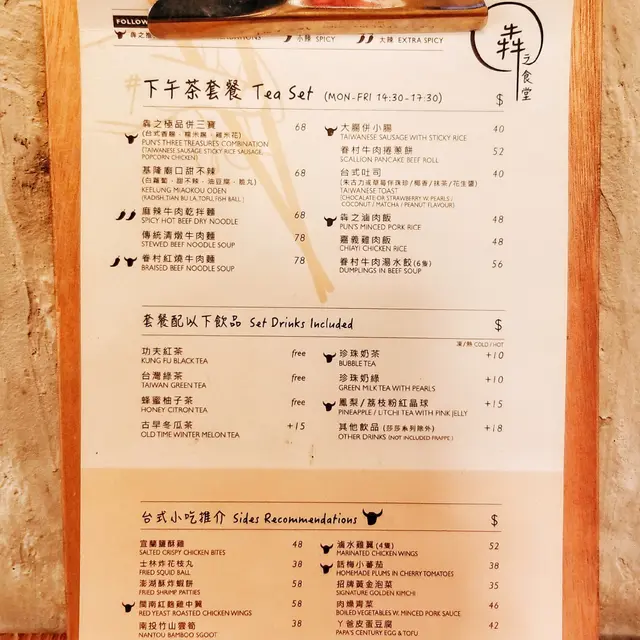 FOLLOW
小辣 SPICY
大辣 EXTRA SPICY
犇之食堂
#下午茶套餐 Tea Set (MON-FRI 14:30-17:30) $
犇之極品併三寶 68
(台式香腸、糯米腸、雞米花)
PUN'S THREE TREASURES COMBINATION
(TAIWANESE SAUSAGE, STICKY RICE SAUSAGE,
POPCORN CHICKEN)
基隆廟口甜不辣 68
(白蘿蔔、甜不辣、油豆腐、脆丸)
KEELUNG MIAOKOU ODEN
(RADISH, TIAN BU LA, TOFU, FISH BALL)
麻辣牛肉乾拌麵 68
SPICY HOT BEEF DRY NOODLE
傳統清燉牛肉麵 78
STEWED BEEF NOODLE SOUP
眷村紅燒牛肉麵 78
BRAISED BEEF NOODLE SOUP
大腸併小腸 40
TAIWANESE SAUSAGE WITH STICKY RICE
眷村牛肉捲蔥餅 52
SCALLION PANCAKE BEEF ROLL
台式吐司 40
(朱古力或草莓伴珠珍/椰香/抹茶/花生醬)
TAIWANESE TOAST
(CHOCOLATE OR STRAWBERRY W. PEARLS /
COCONUT / MATCHA / PEANUT FLAVOUR)
犇之滷肉飯 48
PUN'S MINCED PORK RICE
嘉義雞肉飯 48
CHIAYI CHICKEN RICE
眷村牛肉湯水餃(6隻) 56
DUMPLINGS IN BEEF SOUP
套餐配以下飲品 Set Drinks Included $
凍/熱 COLD/HOT
功夫紅茶 free
KUNG FU BLACK TEA
台灣綠茶 free
TAIWAN GREEN TEA
蜂蜜柚子茶 free
HONEY CITRON TEA
古早冬瓜茶 +15
OLD TIME WINTER MELON TEA
珍珠奶茶 +10
BUBBLE TEA
珍珠奶綠 +10
GREEN MILK TEA WITH PEARLS
鳳梨/荔枝粉紅晶球 +15
PINEAPPLE / LITCHI TEA WITH PINK JELLY
其他飲品 (莎莎系列除外) +18
OTHER DRINKS (NOT INCLUDED FRAPPE)
台式小吃推介 Sides Recommendations $
宜蘭鹽酥雞 48
SALTED CRISPY CHICKEN BITES
士林炸花枝丸 38
FRIED SQUID BALL
澎湖酥炸蝦餅 58
FRIED SHRIMP PATTIES
閩南紅麴雞中翼 58
RED YEAST ROASTED CHICKEN WINGS
南投竹山雲筍 38
NANTOU BAMBOO SGOOT
滷水雞翼(4隻) 52
MARINATED CHICKEN WINGS
話梅小蕃茄 38
HOMEMADE PLUMS IN CHERRY TOMATOES
招牌黃金泡菜 35
SIGNATURE GOLDEN KIMCHI
肉燥青菜 46
BOILED VEGETABLES W. MINCED PORK SAUCE
丫爸皮蛋豆腐 42
PAPA'S CENTURY EGG & TOFU